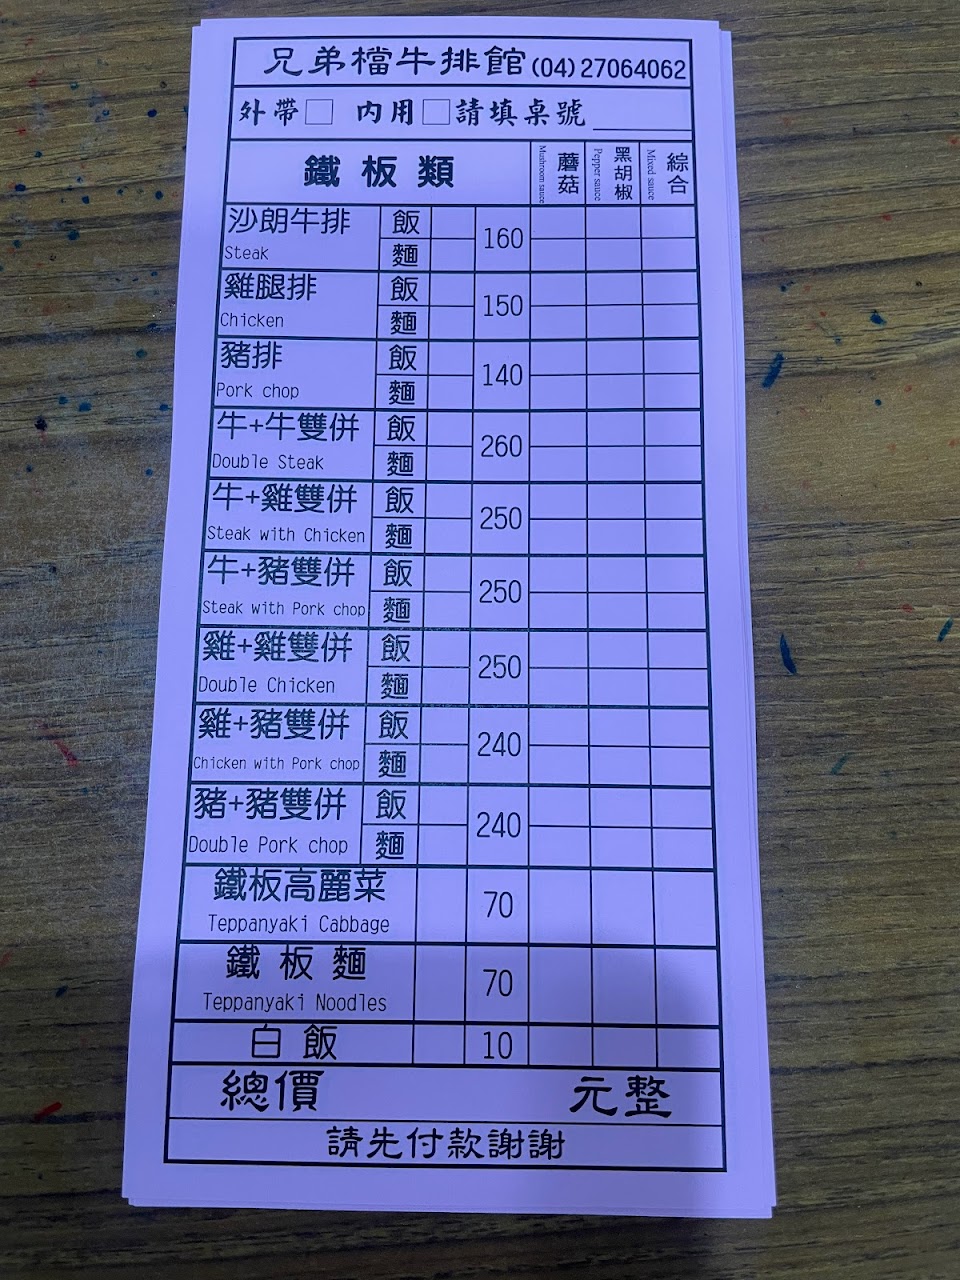 兄弟檔牛排館(04)27064062
外帶□ 內用□請填桌號
鐵板類 Mushroom sauce 蘑菇 Pepper sauce 黑胡椒 Mixed sauce 綜合
沙朗牛排 飯 160
Steak 麵
雞腿排 飯 150
Chicken 麵
豬排 飯 140
Pork chop 麵
牛+牛雙併 飯 260
Double Steak 麵
牛+雞雙併 飯 250
Steak with Chicken 麵
牛+豬雙併 飯 250
Steak with Pork chop 麵
雞+雞雙併 飯 250
Double Chicken 麵
雞+豬雙併 飯 240
Chicken with Pork chop 麵
豬+豬雙併 飯 240
Double Pork chop 麵
鐵板高麗菜 70
Teppanyaki Cabbage
鐵板麵 70
Teppanyaki Noodles
白飯 10
總價 元整
請先付款謝謝